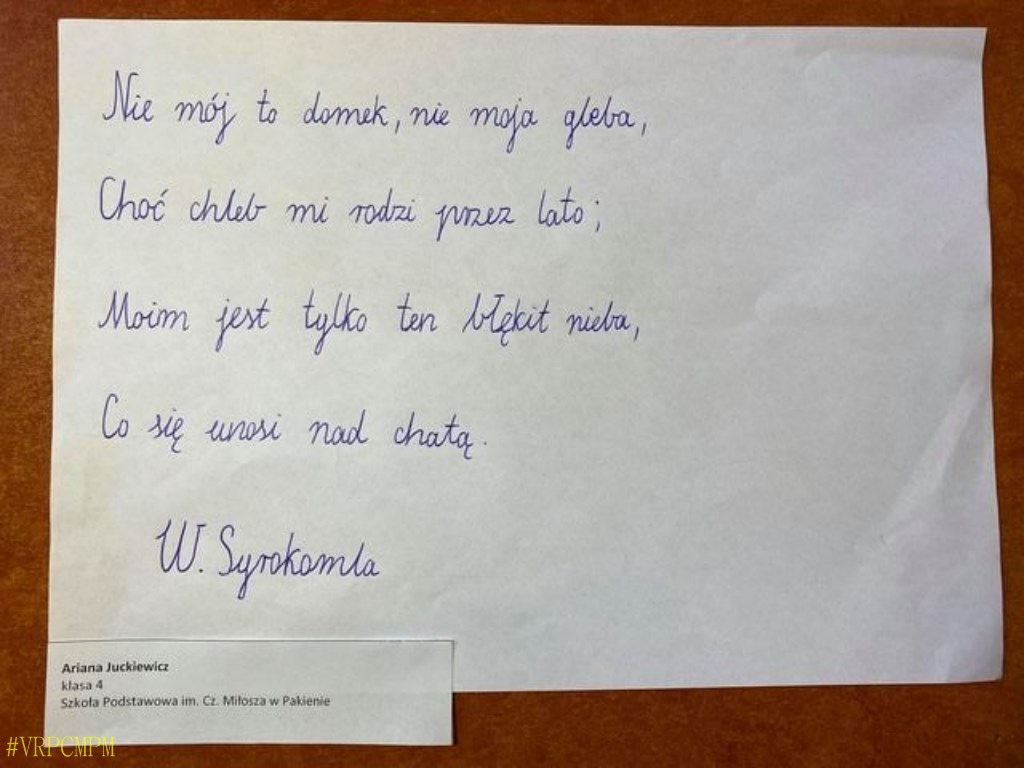 Nie mój to domek, nie moja gleba,
Choć chleb mi rodzi przez lato;
Moim jest tylko ten błękit nieba,
Co się unosi nad chatą.
W. Syrokomla
Ariana Juckiewicz
klasa 4
Szkoła Podstawowa im. Cz. Miłosza w Pakienie
#VRPCMPM